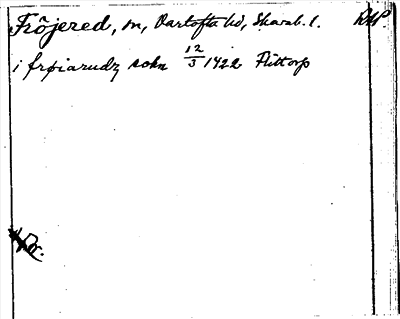 Fröjered, sn, Vartofta hd, Skarab. l. RAP.
i frøiarudz sokn 12/3 1422 Flittorp
Or.